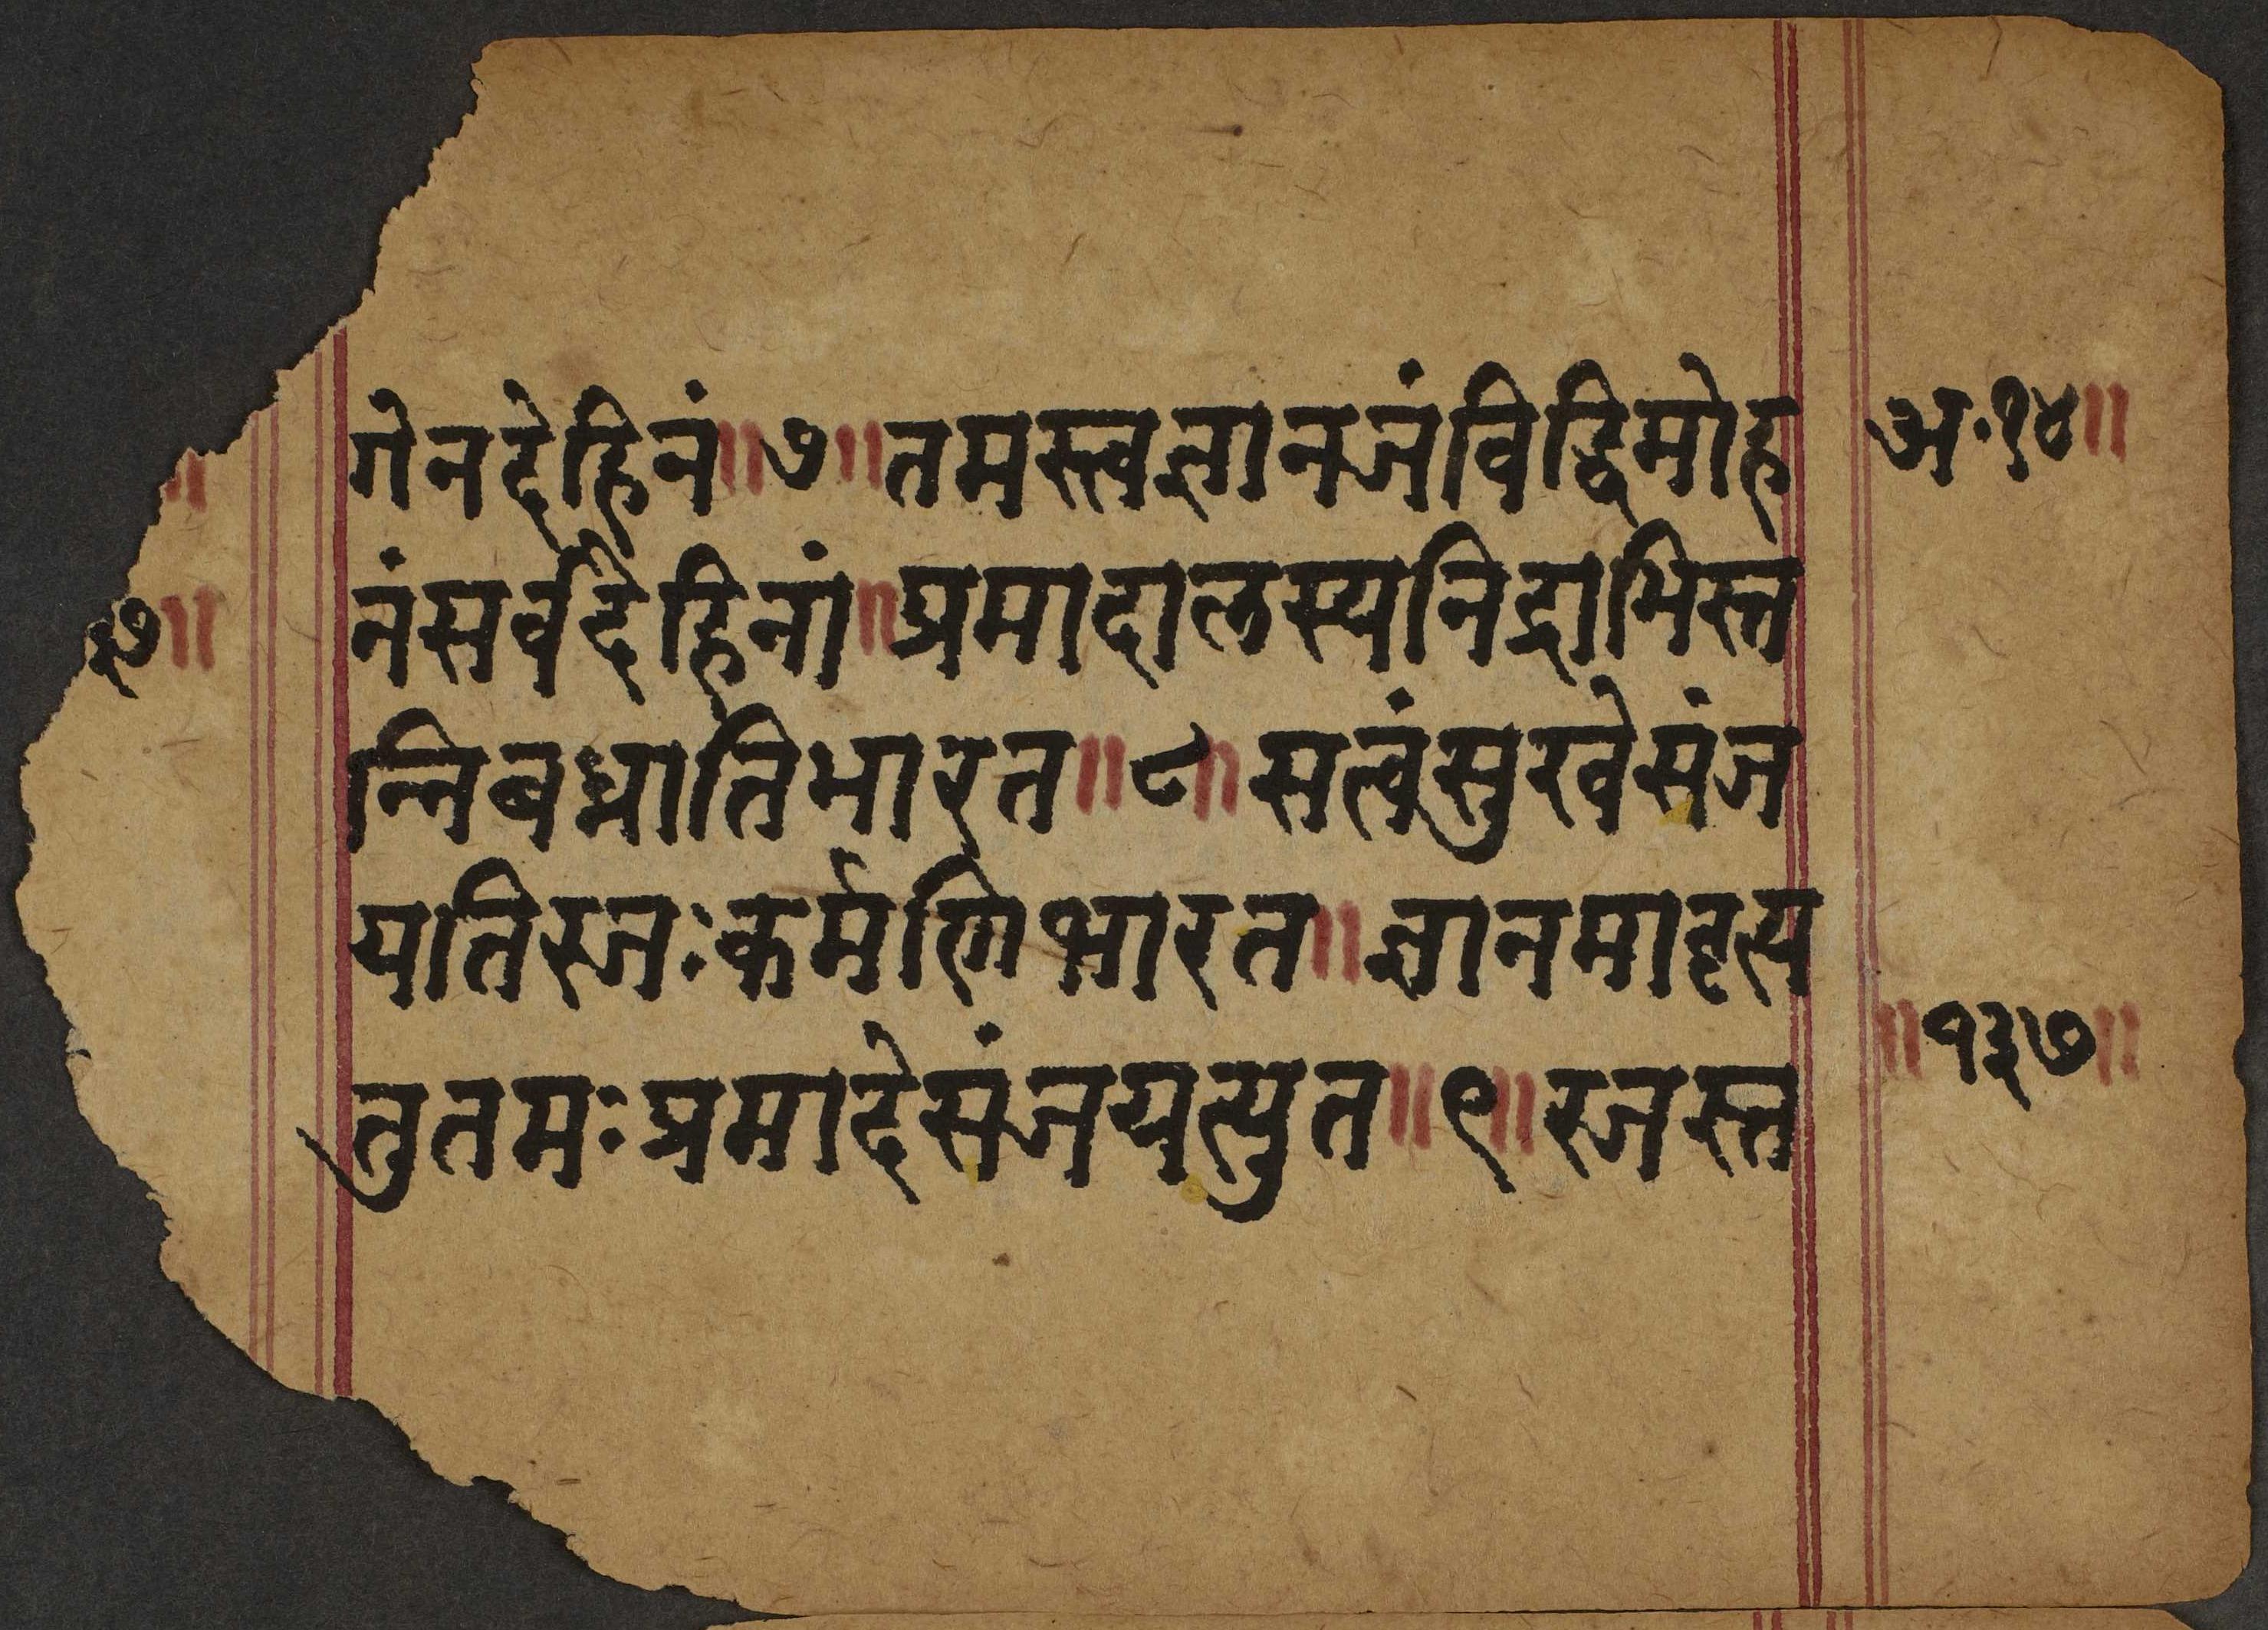 गेनदेहिनं॥७॥तमस्त्वज्ञानजंविद्धिमोह
अ·१४॥
नंसर्वदेहिनां॥प्रमादालस्यनिद्राभिस्त
३७॥
न्निबध्नातिभारत॥८॥सत्वंसुखेसंज
यतिरजःकर्मणिभारत॥ज्ञानमावृत्य
॥१३७॥
तुतमःप्रमादेसंजयत्युत॥९॥रजस्त